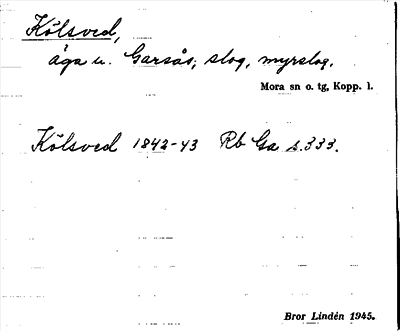 Kölsved,
äga u. Garsås; slog, myrslog.
Mora sn o. tg, Kopp. l.
Kölsved 1842-43 Rb Ga s.333.
Bror Lindén 1945.